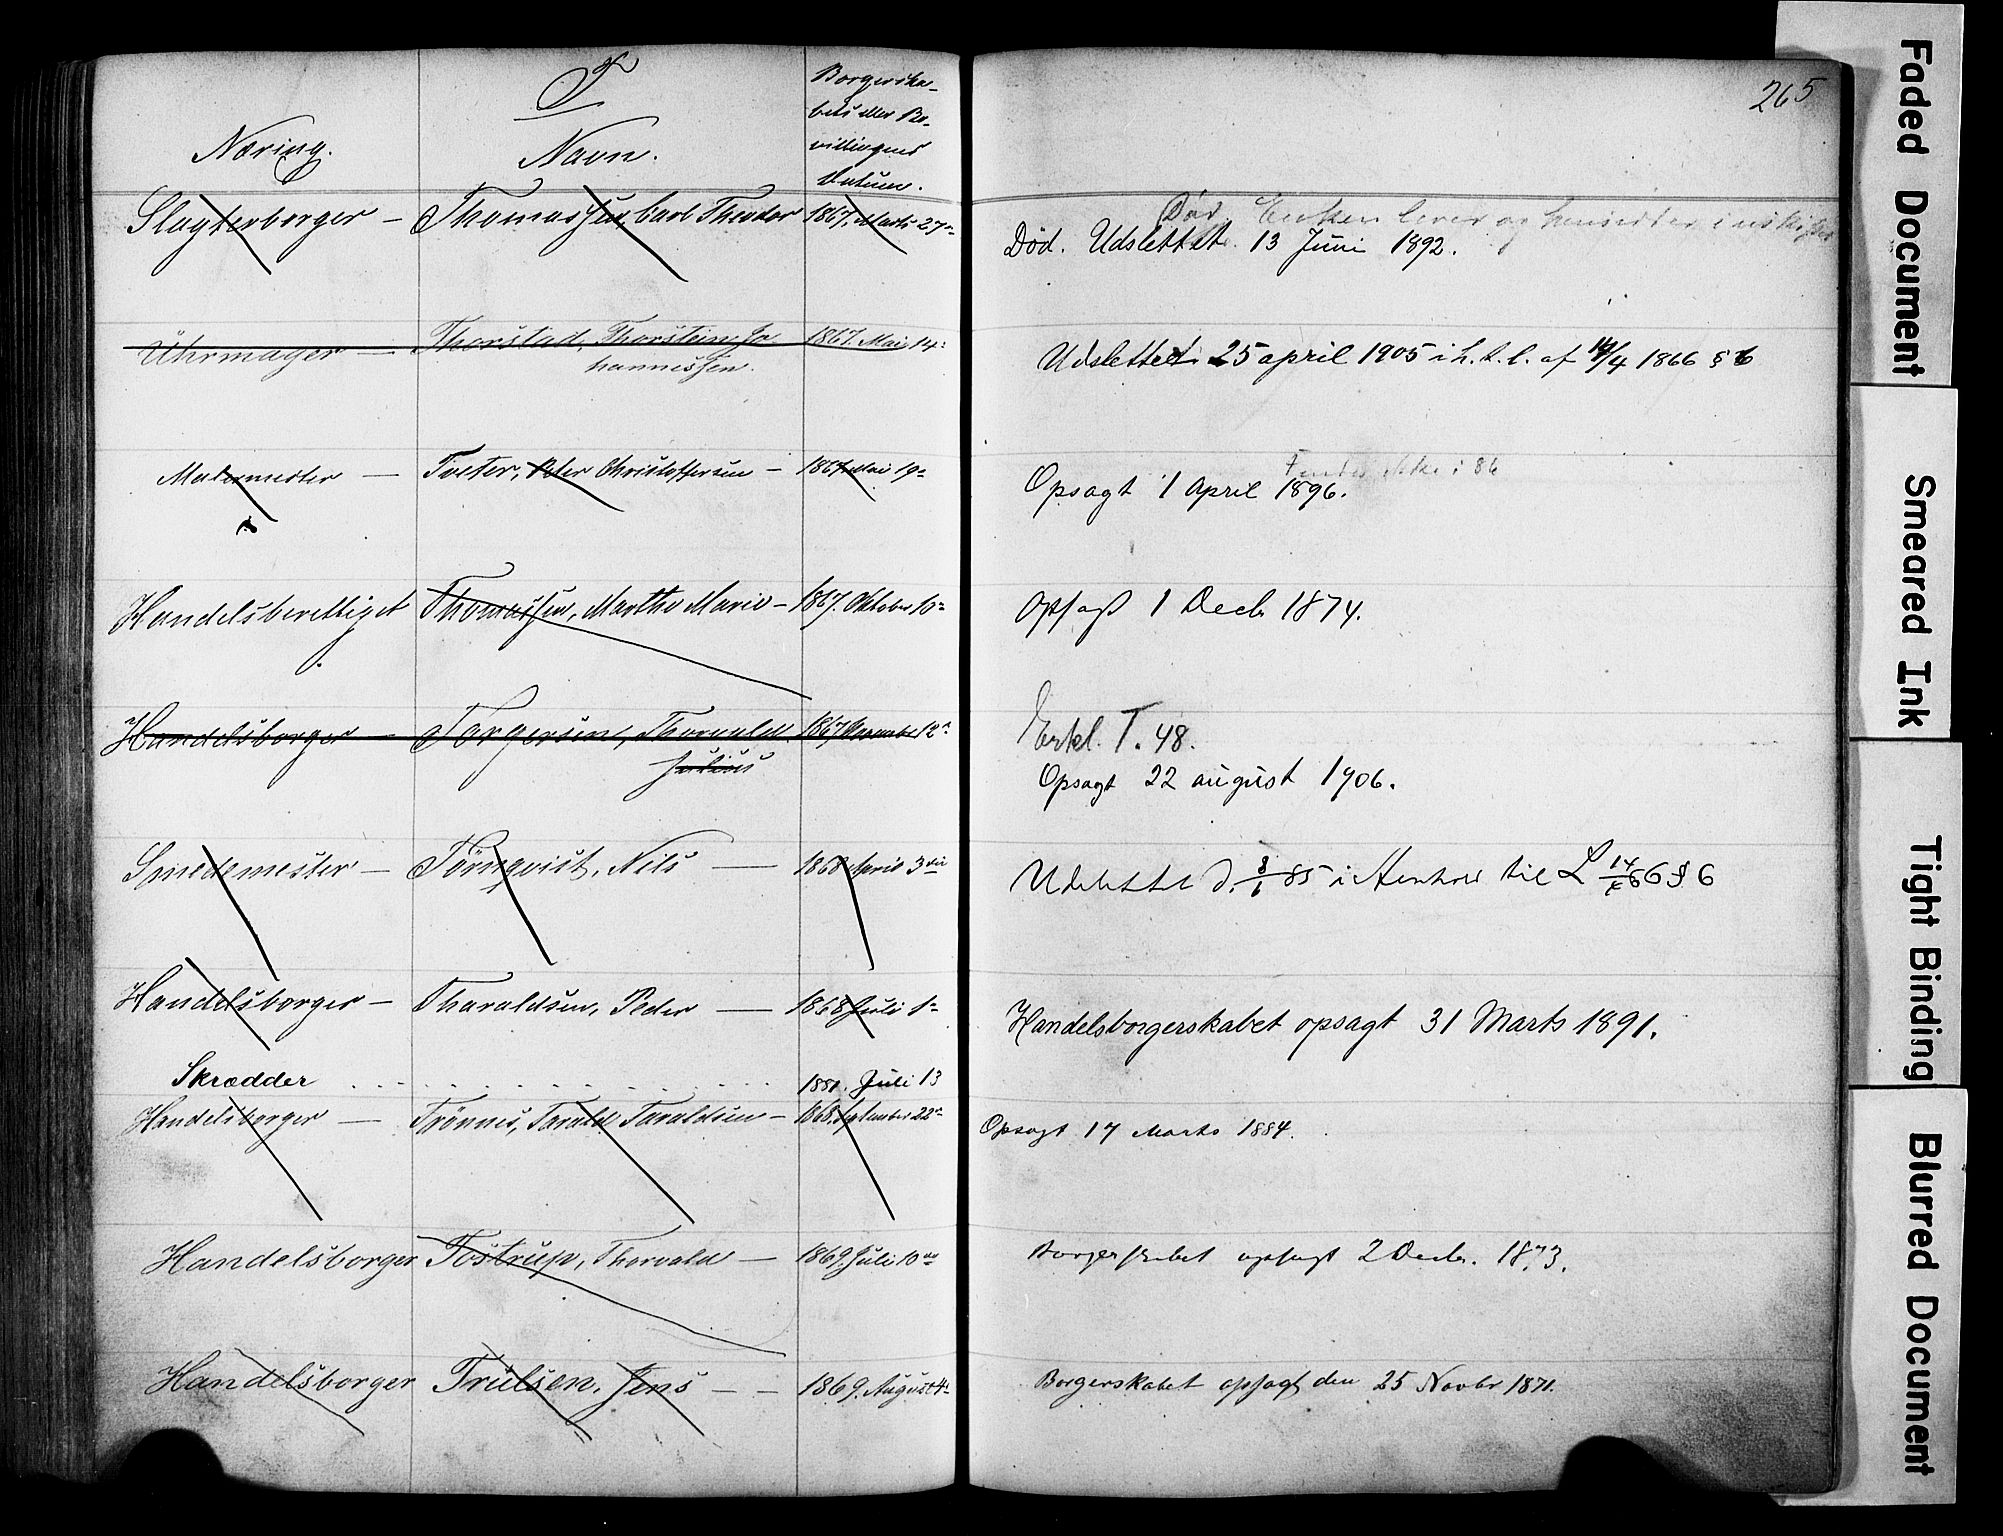 T
Næring.
Navn.
Borgerska-
bets eller Be-
villingens
Datum.
265
Slagterborger — Thomassen, Carl Theodor 1867. Marts 27de
Død. Enken lever og hensidder i uskiftet
Død. Udslettet. 13 Juni 1892.
Uhrmager — Thorstad, Thorstein Jo 1867. Mai 14.
hannessen.
Udslettet 25 april 1905 i h. t. l. af 14/4 1866 § 6
Malermester — Tveter, Peter Christoffersen — 1867. Mai 19de
Findes ikke i 86
Opsagt 1 April 1896.
Handelsberettiget Thomassen, Marthe Marie — 1867. Oktober 10de
Opsagt 1 Decb 1874.
Handelsborger — Torgersen, Thorvald 1867. November 12te
Julius
Erkl. T. 48.
Opsagt 22 august 1906.
Smedemester — Törnqvist, Nils — 1868 April 3die
Udslettet d. 8/6 85 i Henhold til L 14/4 66 § 6
Handelsborger — Tharaldsen, Peder — 1868 Juli 1ste
Handelsborgerskabet opsagt 31 Marts 1891.
Skrædder . . . . . . . . . . 1881. Juli 13
Handelsborger — Trönnes, Tarald Taraldsen — 1868. September 22de
Opsagt 17 Marts 1884.
Handelsborger Tostrup, Thorvald — 1869. Juli 10de
Borgerskabet opsagt 2 Decbr. 1873.
Handelsborger Trulsen, Jens — — 1869. August 4de
Borgerskabet opsagt den 25 Novbr 1871.
Faded Document
Smeared Ink
Tight Binding
Blurred Document